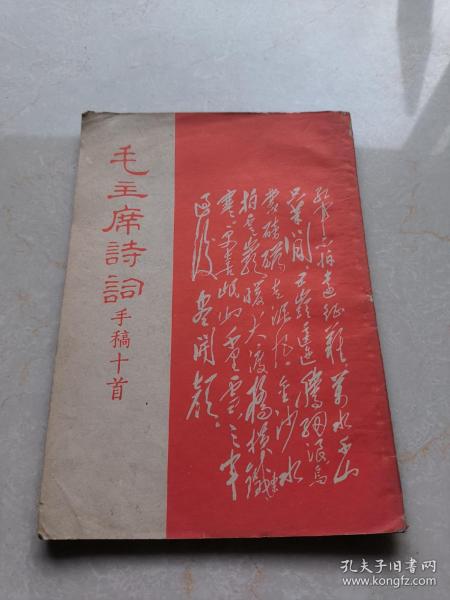 毛主席詩詞手稿十首
紅軍不怕遠征難萬水千山
只等閒五嶺逶迤腾細浪烏
蒙磅礴走泥丸金沙水
拍雲崖暖大渡橋橫鐵索
寒更喜岷山千里雪三軍
過後盡開顏。
孔夫子旧书网
www.kongfz.com